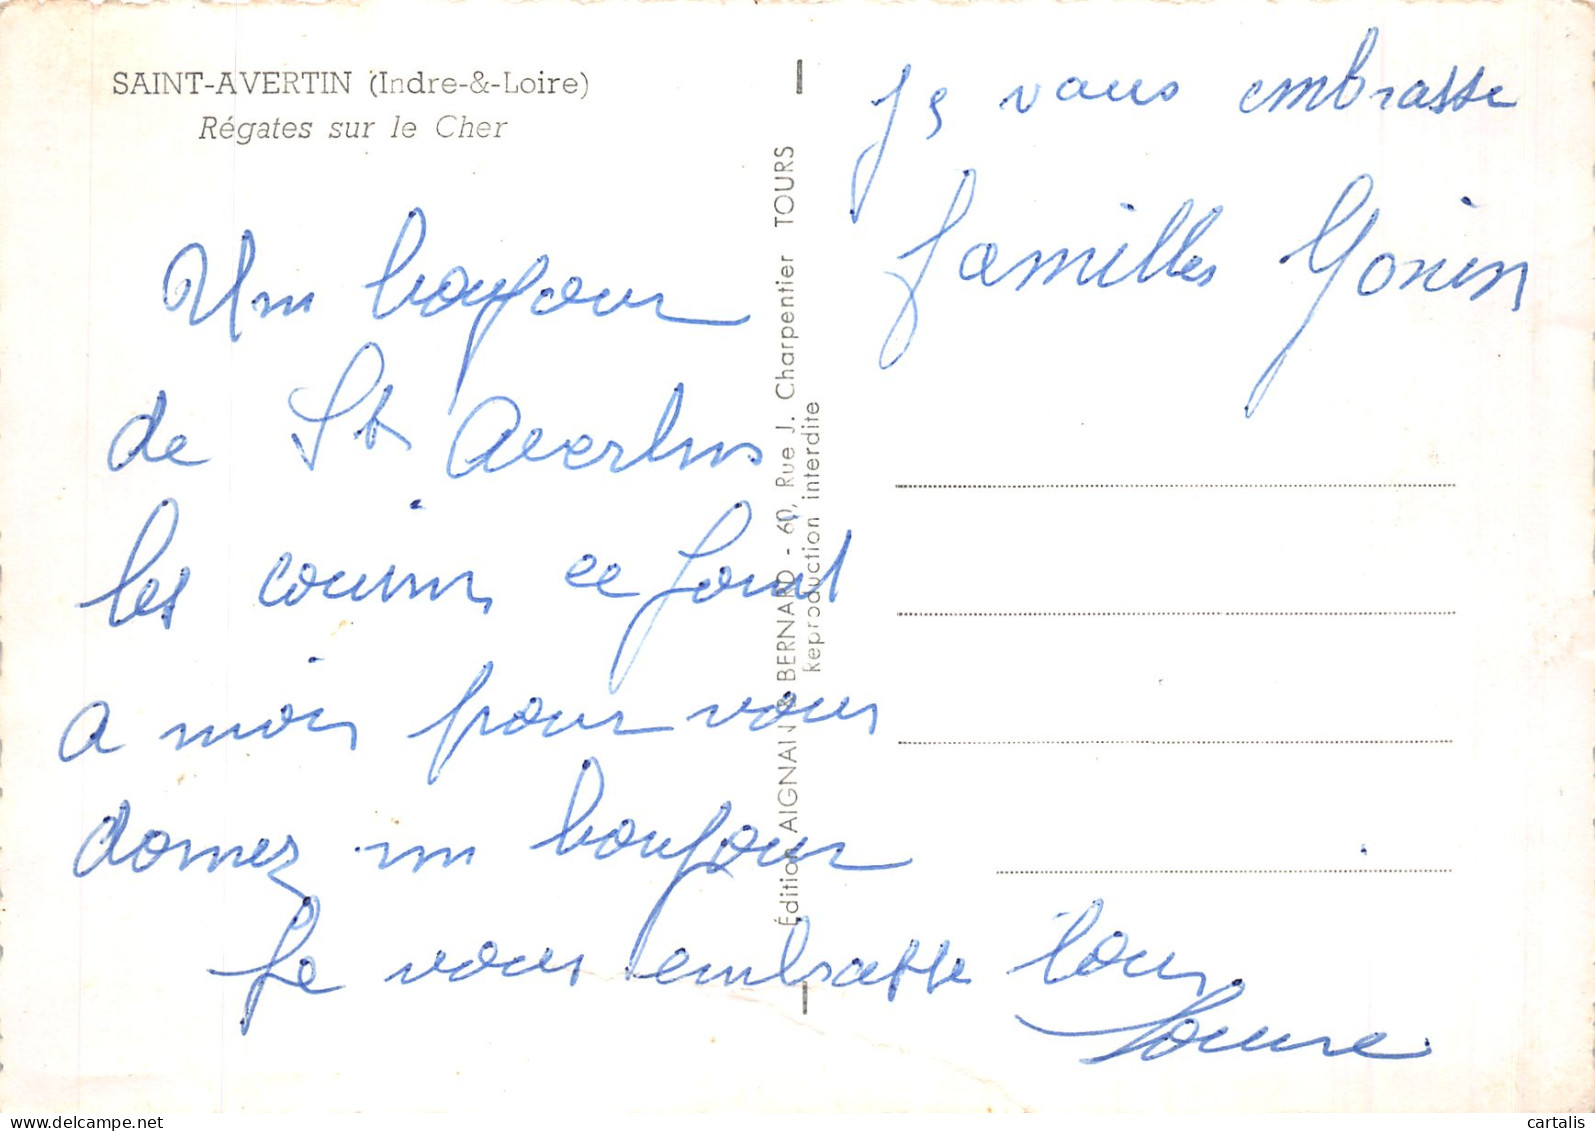 SAINT-AVERTIN (Indre-&-Loire)
Régates sur le Cher
Un boujour
de St Avertin
les cousins ce font
a mois pour vous
donnez un boujour
Je vous embrasse tous
Je vous embrasse
familles Gonin
Édition AIGNAN & BERNARD - 60, Rue J. Charpentier TOURS
Reproduction interdite
cartalis